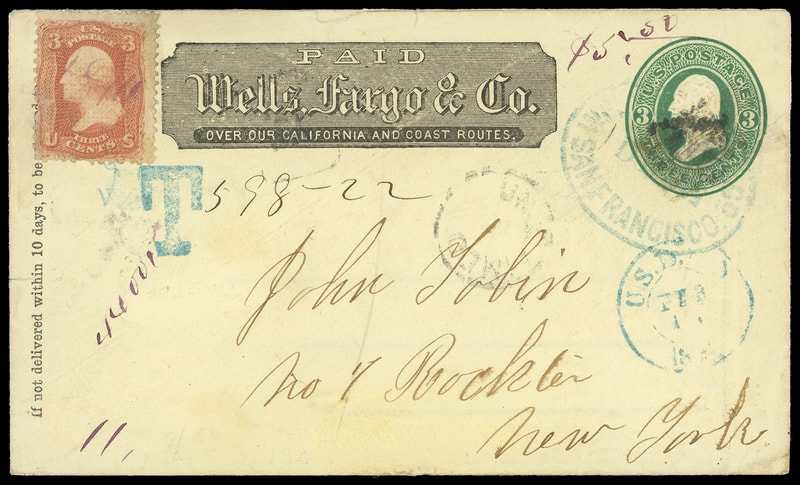 3 U.S. POSTAGE 3
THREE
U CENTS S
PAID
Wells, Fargo & Co.
OVER OUR CALIFORNIA AND COAST ROUTES.
U.S. POSTAGE
3 3
SAN FRANCISCO
If not delivered within 10 days, to be
T
598-22
John Tobin
No 7
New York
U.S.
FEB
11,